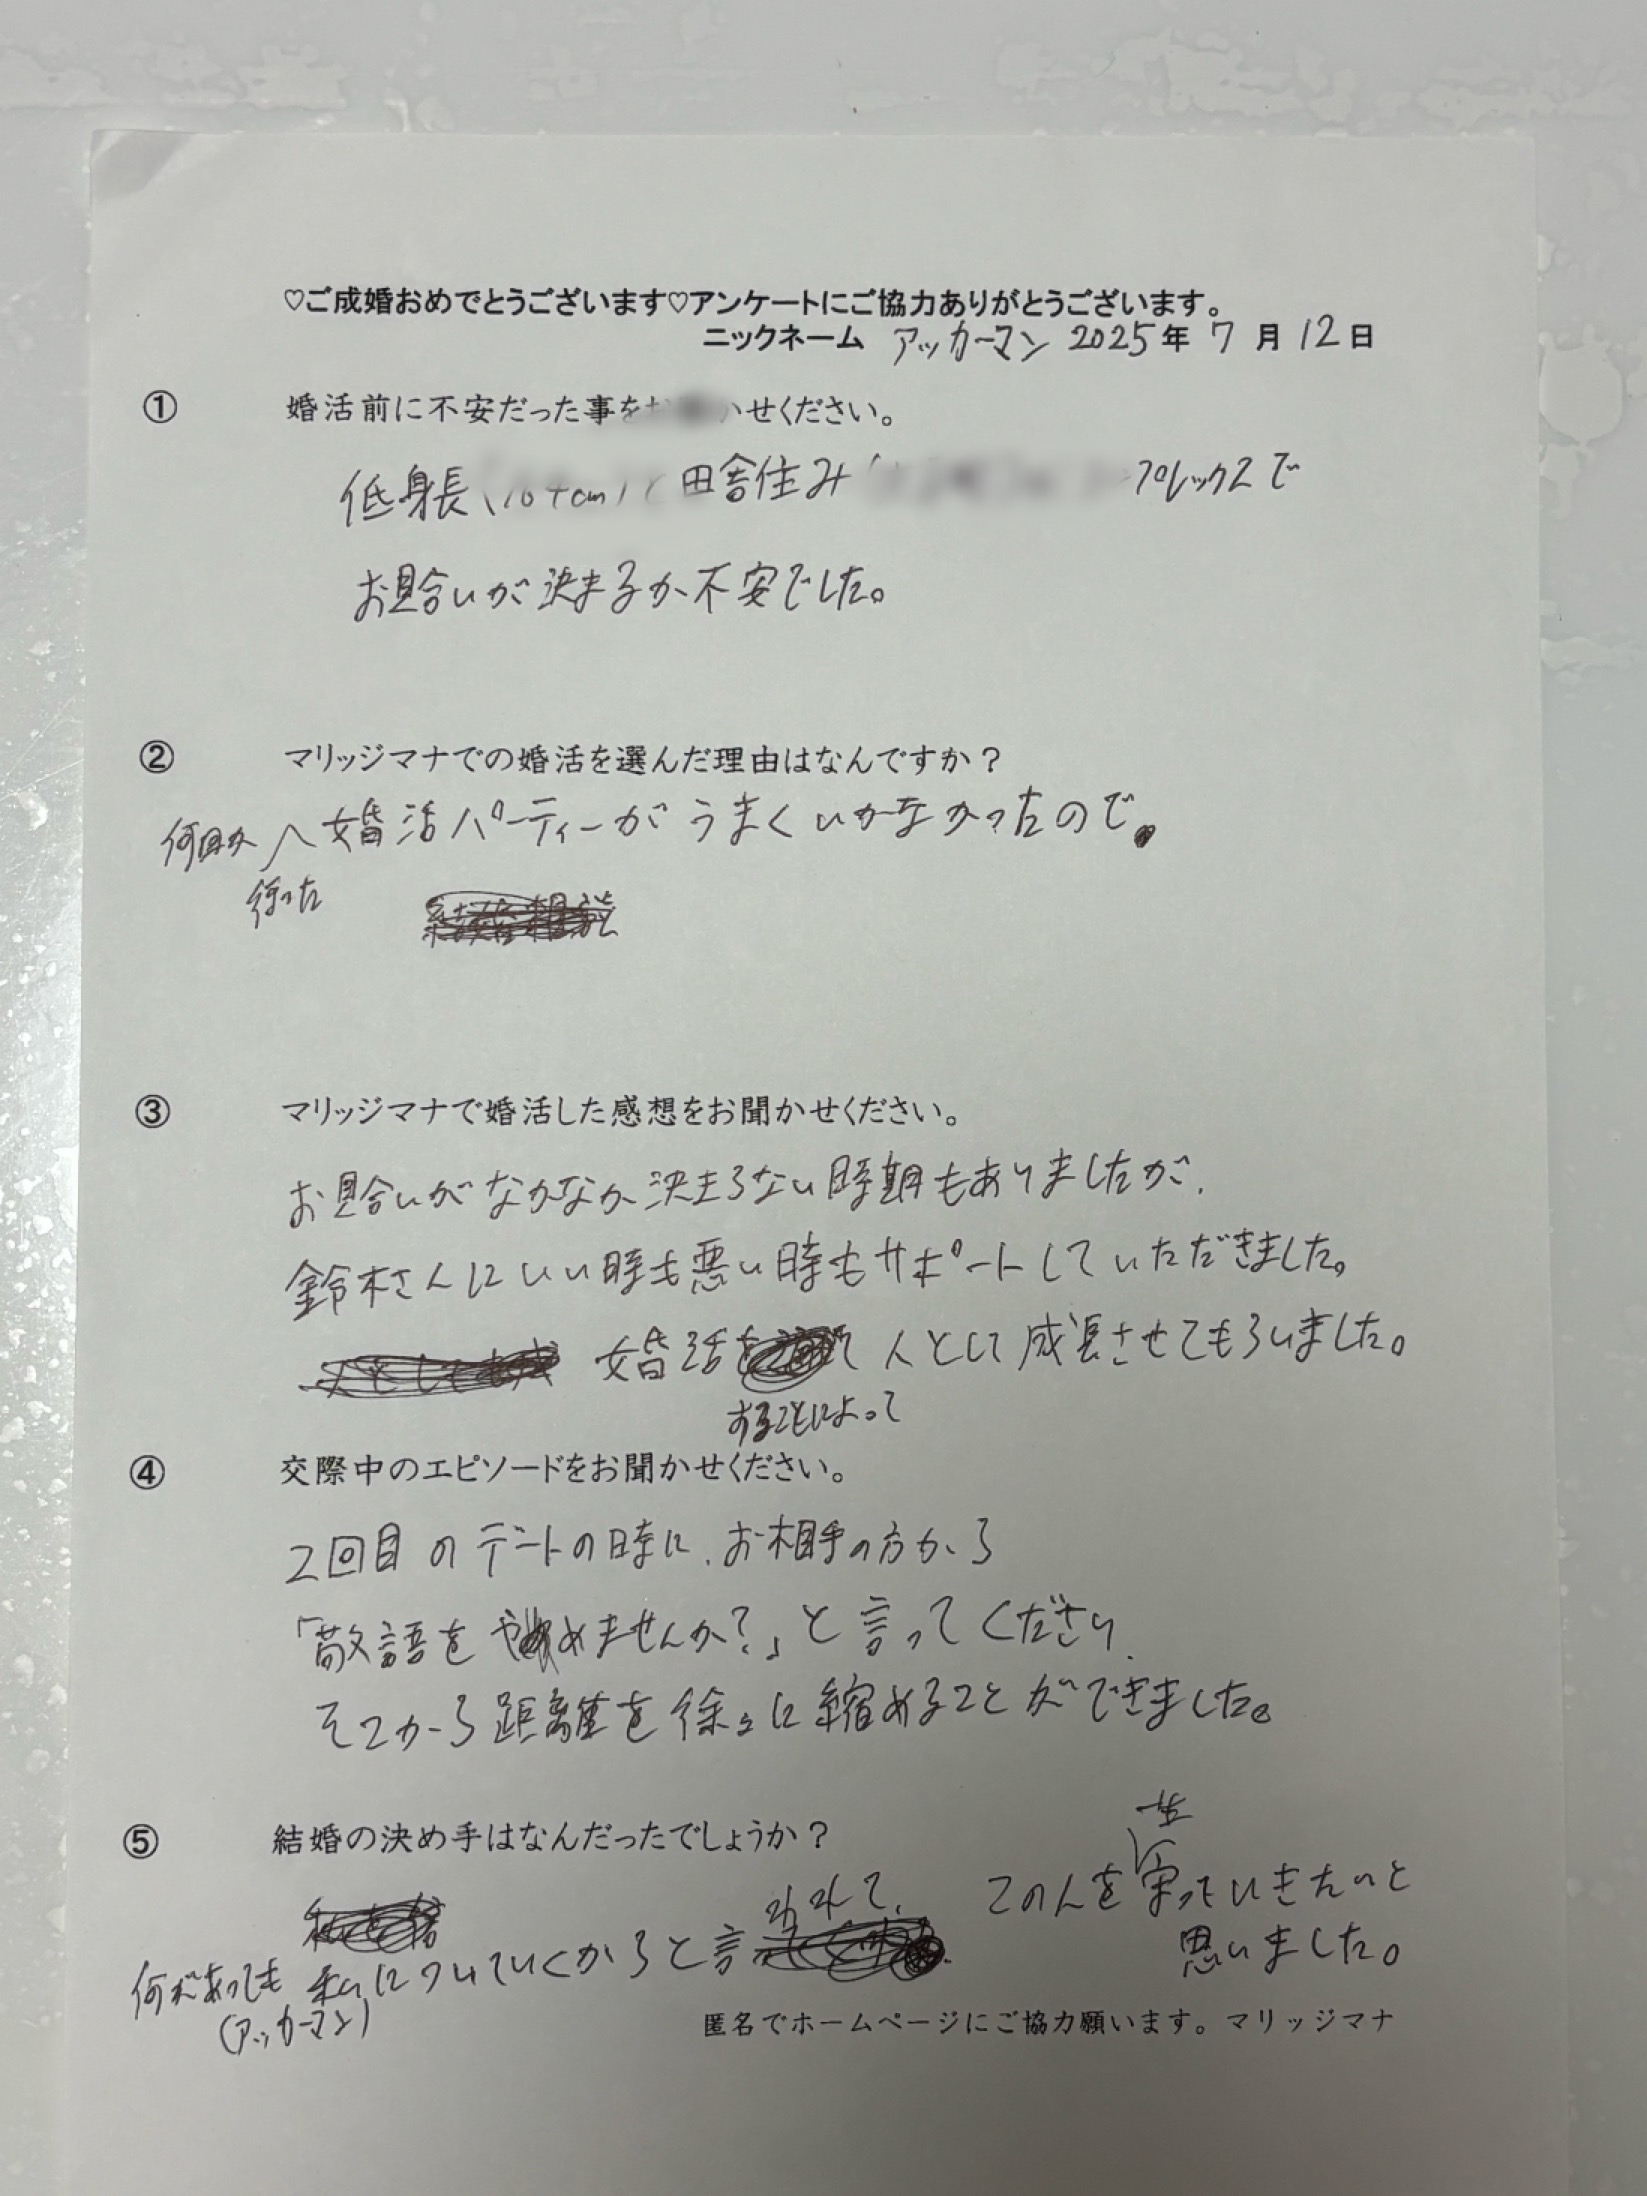 ♡ご成婚おめでとうございます♡アンケートにご協力ありがとうございます。
ニックネーム アッカーマン 2025年 7月 12日
① 婚活前に不安だった事をお かせください。
低身長 と田舎住み プレックスで
お見合いが決まるか不安でした。
② マリッジマナでの婚活を選んだ理由はなんですか？
何回か行った婚活パーティーがうまくいかなかったので。
③ マリッジマナで婚活した感想をお聞かせください。
お見合いがなかなか決まらない時期もありましたが、
鈴木さんにいい時も悪い時もサポートしていただきました。
婚活することによって人として成長させてもらいました。
④ 交際中のエピソードをお聞かせください。
2回目のデートの時に、お相手の方から
「敬語をやめませんか?」と言ってくださり、
そこから距離を徐々に縮めることができました。
⑤ 結婚の決め手はなんだったでしょうか？
何があっても私(アッカーマン)についていくからと言われて、
この人を一生守っていきたいと
思いました。
匿名でホームページにご協力願います。マリッジマナ